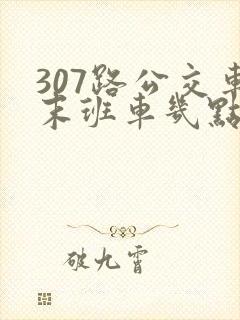 307路公交車
末班車幾點
破九霄